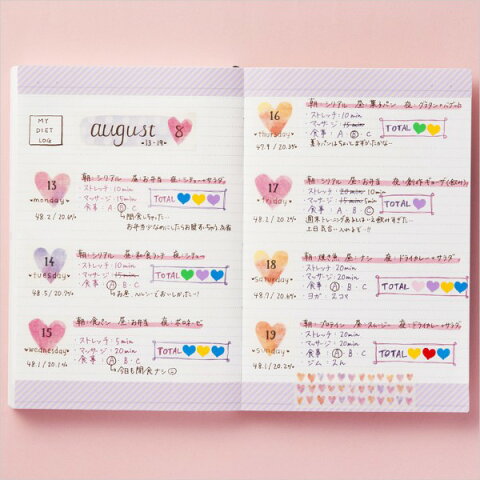 MY
DIET
LOG
august 8
•13-19•
13
•monday•
48.2 / 20.6%
朝・シリアル 昼・お弁当 夜・シチュー+サラダ
ストレッチ : 10min
マッサージ : 15min
食事 : A B C
→間食しちゃった…
TOTAL
14
•tuesday•
48.5 / 20.7%
朝・シリアル 昼・和食ランチ 夜・シチュー
ストレッチ : 10min
マッサージ : 15min
食事 : A B C
TOTAL
15
•wednesday•
48.1 / 20.1%
朝・食パン 昼・お弁当 夜・ボロネーゼ
ストレッチ : 5min
マッサージ : 20min
食事 : A B C
→今日も間食ナシ
TOTAL
16
•thursday•
47.9 / 20.3%
朝・シリアル 昼・菓子パン 夜・グラタン+バゲット
ストレッチ : 10min
マッサージ : 15min
食事 : A B C
TOTAL
17
•friday•
48.2 / 20.2%
朝・シリアル 昼・お弁当 夜・創作ギョーザ(飲み会)
ストレッチ : 20min 10min
マッサージ : 15min 5min
食事 : A B C
土日気合い入れます!!
TOTAL
18
•saturday•
48.7 / 20.6%
朝・焼き魚 昼・ナシ 夜・ドライカレー+サラダ
ストレッチ : 20min
マッサージ : 20min
食事 : A B C
ヨガ : 2コマ
TOTAL
19
•sunday•
48.1 / 20.2%
朝・プロテイン 昼・スムージー 夜・ドライカレー+サラダ
ストレッチ : 20min
マッサージ : 20min
食事 : A B C
ジム : 2h
TOTAL